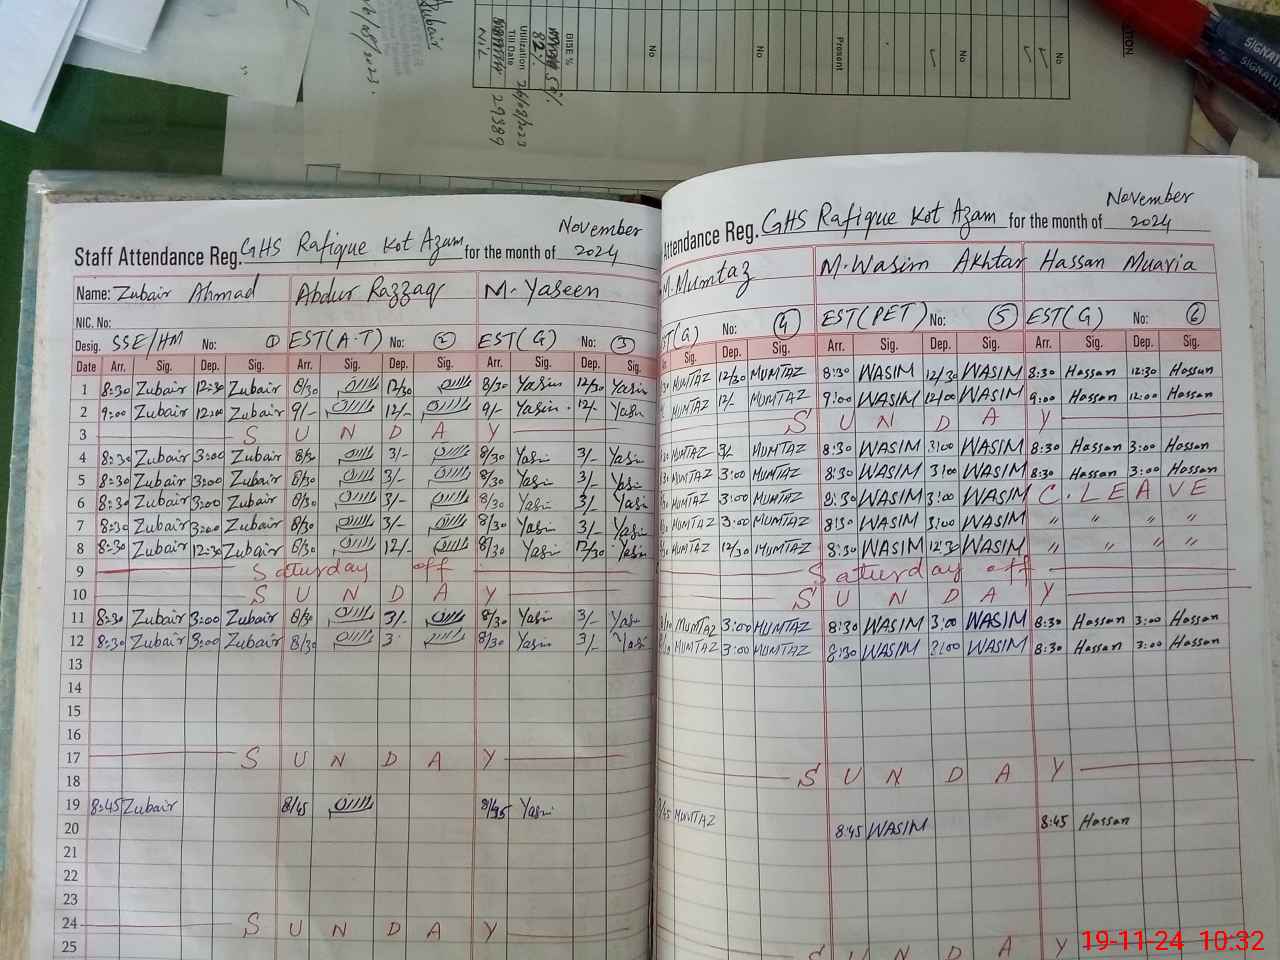 Zubair
BISE %
82%
Utilization 26/08/2023
Till Date
NIL
29389
No
No
Present
No
No
SIGNATURE
Staff Attendance Reg. GHS Rafique Kot Azam for the month of November 2024
Name: Zubair Ahmad Abdur Razzaq M. Yaseen
NIC. No:
Desig. SSE/HM No: 1 EST(A.T) No: 2 EST(G) No: 3
Date Arr. Sig. Dep. Sig. Arr. Sig. Dep. Sig. Arr. Sig. Dep. Sig.
1 8:30 Zubair 12:30 Zubair 8/30 12/30 8/30 Yasin 12/30 Yasin
2 9:00 Zubair 12:00 Zubair 9/- 12/- 9/- Yasin 12/- Yasin
3 S U N D A Y
4 8:30 Zubair 3:00 Zubair 8/30 3/- 8/30 Yasin 3/- Yasin
5 8:30 Zubair 3:00 Zubair 8/30 3/- 8/30 Yasin 3/- Yasin
6 8:30 Zubair 3:00 Zubair 8/30 3/- 8/30 Yasin 3/- Yasin
7 8:30 Zubair 3:00 Zubair 8/30 3/- 8/30 Yasin 3/- Yasin
8 8:30 Zubair 12:30 Zubair 8/30 12/- 8/30 Yasin 12/30 Yasin
9 Saturday off
10 S U N D A Y
11 8:30 Zubair 3:00 Zubair 8/30 3/- 8/30 Yasin 3/- Yasin
12 8:30 Zubair 3:00 Zubair 8/30 3 8/30 Yasin 3/- Yasin
13
14
15
16
17 S U N D A Y
18
19 8:45 Zubair 8/45 8/45 Yasin
20
21
22
23
24 S U N D A Y
25
Attendance Reg. GHS Rafique Kot Azam for the month of November 2024
M. Mumtaz M. Wasim Akhtar Hassan Muavia
EST(G) No: 4 EST(PET) No: 5 EST(G) No: 6
Sig. Dep. Sig. Arr. Sig. Dep. Sig. Arr. Sig. Dep. Sig.
MUMTAZ 12/30 MUMTAZ 8:30 WASIM 12/30 WASIM 8:30 Hassan 12:30 Hassan
MUMTAZ 12/- MUMTAZ 9:00 WASIM 12/00 WASIM 9:00 Hassan 12:00 Hassan
S U N D A Y
MUMTAZ 3/- MUMTAZ 8:30 WASIM 3:00 WASIM 8:30 Hassan 3:00 Hassan
MUMTAZ 3:00 MUMTAZ 8:30 WASIM 3:00 WASIM 8:30 Hassan 3:00 Hassan
MUMTAZ 3:00 MUMTAZ 8:30 WASIM 3:00 WASIM C. L E A V E
MUMTAZ 3:00 MUMTAZ 8:30 WASIM 3:00 WASIM " " " "
MUMTAZ 12/30 MUMTAZ 8:30 WASIM 12:30 WASIM " " " "
Saturday off
S U N D A Y
MUMTAZ 3:00 MUMTAZ 8:30 WASIM 3:00 WASIM 8:30 Hassan 3:00 Hassan
MUMTAZ 3:00 MUMTAZ 8:30 WASIM 3:00 WASIM 8:30 Hassan 3:00 Hassan
S U N D A Y
8/45 MUMTAZ 8:45 WASIM 8:45 Hassan
S U N D A Y
19-11-24 10:32